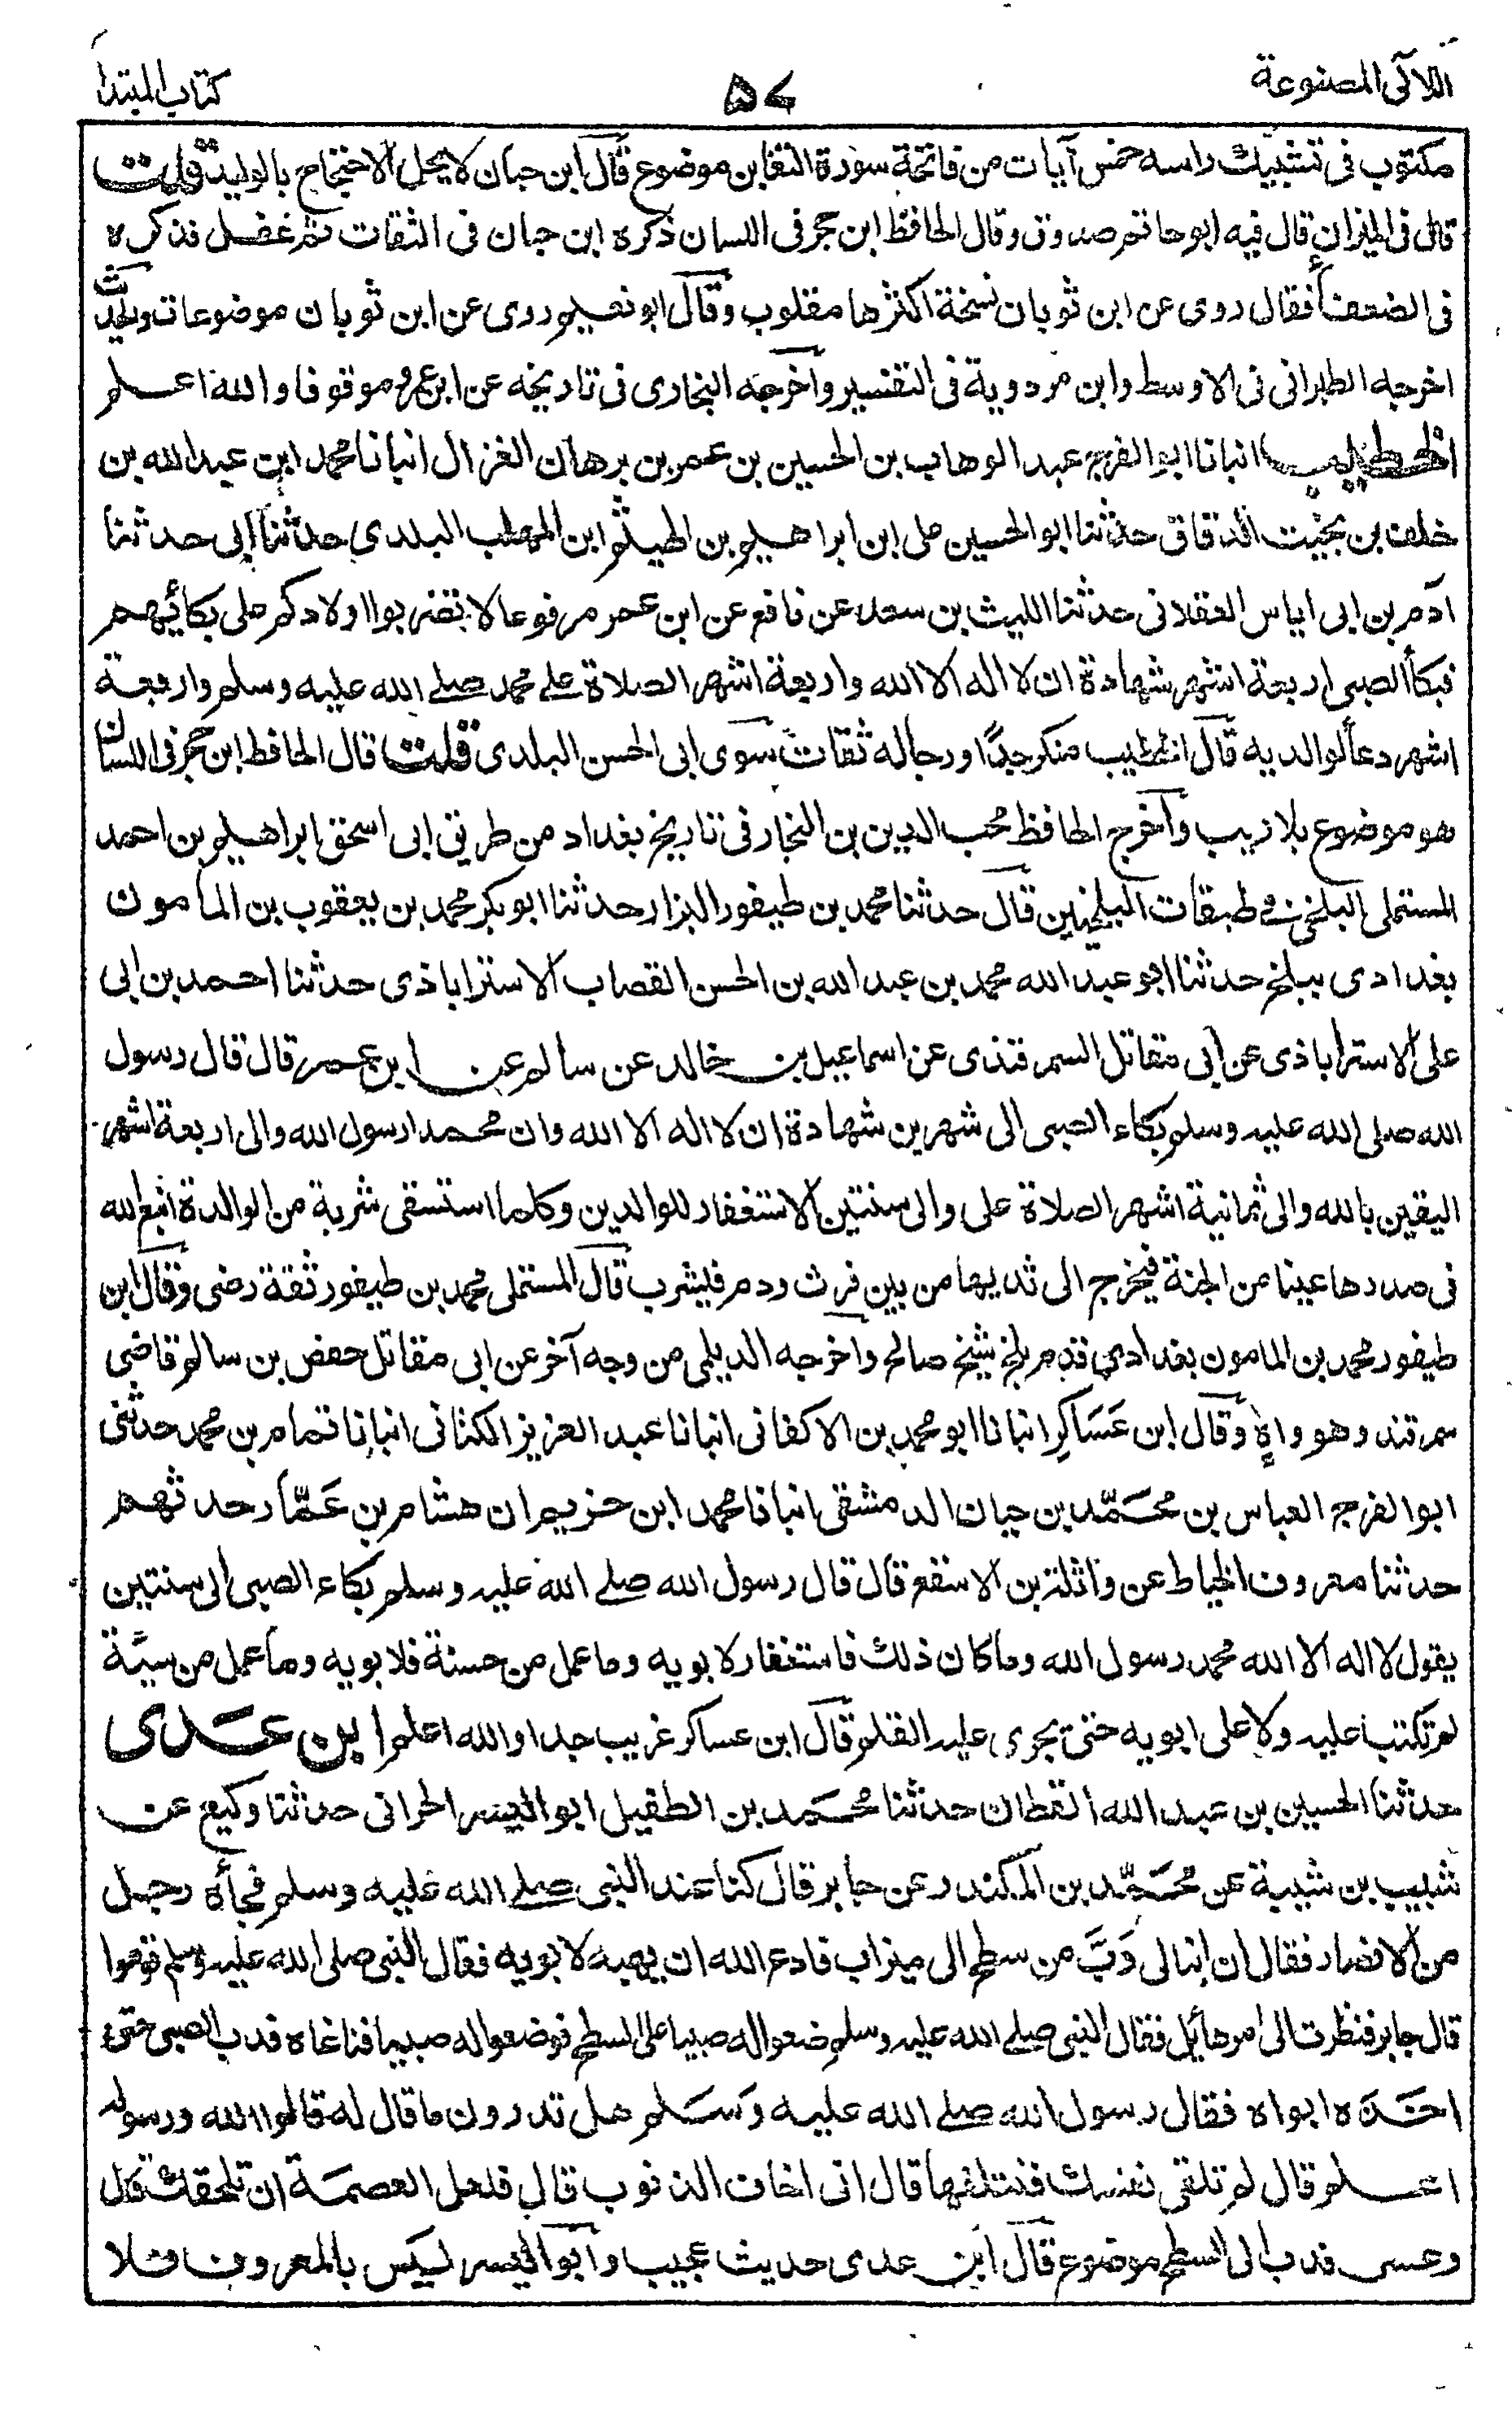 اللآلى المصنوعة
۵۷
كتاب المبتدا
مكتوب فى تشبيك راسه خمس آيات من فاتحة سورة التغابن موضوع قال ابن حبان لا يحل الاحتجاج بالوليد قلت
قال فى الميزان قال فيه ابو حاتم صدوق وقال الحافظ ابن حجر فى اللسان ذكره ابن حبان فى الثقات ثم غفل فذكره
فى الضعفاً فقال روى عن ابن ثوبان نسخة اكثرها مقلوب وقال ابو نعيم روى عن ابن ثوبان موضوعات والحديث
اخرجه الطبرانى فى الاوسط وابن مردوية فى التفسير واخرجه البخارى فى تاريخه عن ابن عمرو موقوفا والله اعلم
الخطيب انبانا ابو الفرج عبد الوهاب بن الحسين بن عمر بن برهان الغزال انبانا محمد ابن عبد الله بن
خلف بن بخيت الدقاق حدثنا ابو الحسين على ابن ابراهيم بن الهيثم ابن المهلب البلدى حدثنا ابى حدثنا
آدم بن ابى اياس العقلانى حدثنا الليث بن سعد عن نافع عن ابن عمر مرفوعا لا تضربوا اولادكم على بكائهم
فبكأ الصبى اربعة اشهر شهادة ان لا اله الا الله واربعة اشهر الصلاة على محمد صلى الله عليه وسلم واربعة
اشهر دعأ لوالديه قال الخطيب منكر جدًا ورجاله ثقات سوى ابى الحسن البلدى قلت قال الحافظ ابن حجر فى اللسان
هو موضوع بلا ريب وآخرج الحافظ محب الدين بن النجار فى تاريخ بغداد من طريق ابى اسحق ابراهيم بن احمد
المستملى البلخى فى طبقات البلخيين قال حدثنا محمد بن طيفور البزار حدثنا ابو بكر محمد بن يعقوب بن المامون
بغدادى ببلخ حدثنا ابو عبد الله محمد بن عبد الله بن الحسن القصاب الاستراباذى حدثنا احمد بن ابى
على الاستراباذى عن ابى مقاتل السمرقندى عن اسماعيل بن خالد عن سالم عن ابن عمر قال قال رسول
الله صلى الله عليه وسلم بكاء الصبى الى شهرين شهادة ان لا اله الا الله وان محمدا رسول الله والى اربعة اشهر
اليقين بالله والى ثمانية اشهر الصلاة على والى سنتين الاستغفار للوالدين وكلما استسقى شربة من الوالدة انبع الله
فى صدرها عينا من الجنة فيخرج الى ثديها من بين فرث ودم فليشرب قال المستملى محمد بن طيفور ثقة رضى وقال ابن
طيفور محمد بن المامون بغدادى قدم بلخ شيخ صالح واخرجه الديلمى من وجه آخر عن ابى مقاتل حفص بن سالم قاضى
سمرقند وهو واهٍ وقال ابن عَسَاكِر انبانا ابو محمد بن الاكفانى انبانا عبد العزيز الكتانى انبانا تمام بن محمد حدثنى
ابو الفرج العباس بن محمّد بن حيان الدمشقى انبانا محمد ابن خزيم ان هشام بن عَمّار حدثهم
حدثنا معروف الخياط عن واثلة بن الاسقع قال قال رسول الله صلى الله عليه وسلم بكاء الصبى الى سنتين
يقول لا اله الا الله محمد رسول الله وما كان ذلك فاستغفار لابويه وما عمل من حسنة فلابويه وما عمل من سيئة
لم تكتب عليه ولا على ابويه حتى يجرى عليه القلم قال ابن عساكر غريب جدا والله اعلم ابن عدى
حدثنا الحسين بن عبد الله القطان حدثنا محمد بن الطفيل ابو اليسر الحرانى حدثنا وكيع عن
شبيب بن شيبة عن مُحَمّد بن المكندر عن جابر قال كنا عند النبى صلى الله عليه وسلم فجأه رجل
من الانصار فقال ان ابنا لى دَبَّ من سطح الى ميزاب فادع الله ان يهبه لابويه فقال النبى صلى الله عليه وسلم قوموا
قال جابر فنظرت الى امر هائل فقال النبى صلى الله عليه وسلم ضعوا له صبيا على السطح فوضعوا له صبيا فناغاه فدب الصبى حتى
اخذه ابواه فقال رسول الله صلى الله عليه وسلم هل تدرون ما قال له قالوا الله ورسوله
اعلم قال لم تلقى نفسك فتتلفها قال انى اخاف الذنوب قال فلعل العصمة ان تلحقك قال
وعسى فدب الى السطح موضوع قال ابن عدى حديث عجيب وابو اليسر ليس بالمعروف فلا